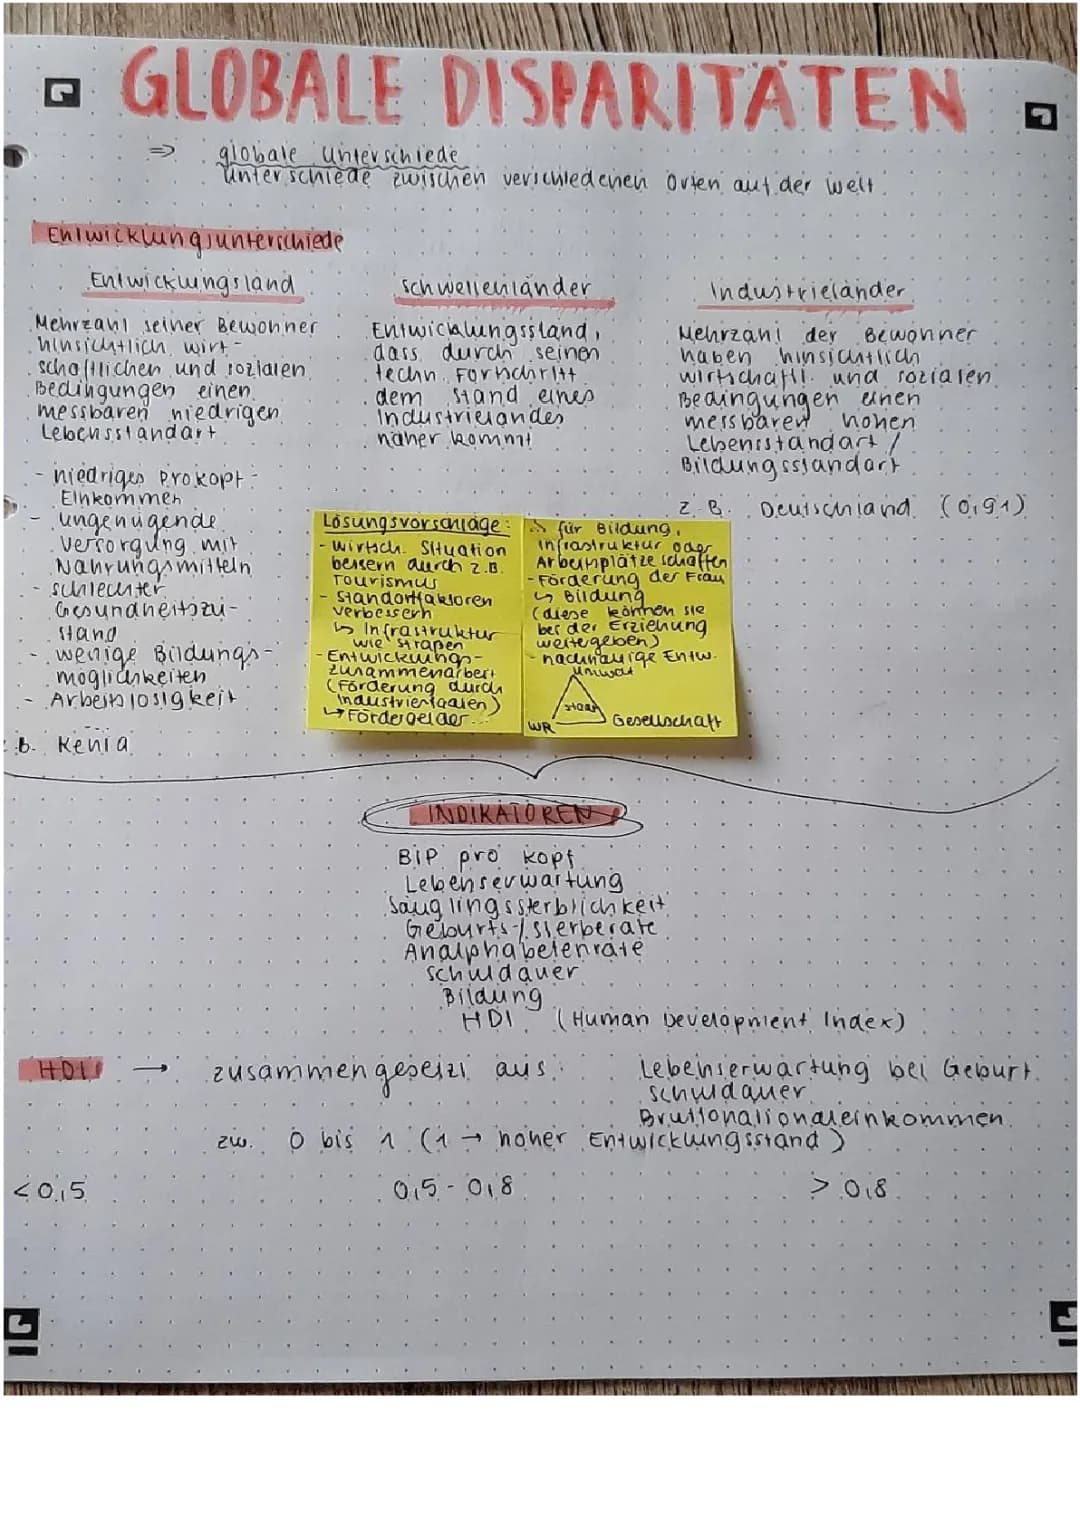 GLOBALE DISPARITÄTEN
⇒ globale Unterschiede
Unterschiede zwischen verschiedenen Orten auf der Welt
Entwicklungsunterschiede
Entwicklungsland
Mehrzahl seiner Bewohner
hinsichtlich wirt-
schaftlichen und sozialen
Bedingungen einen
messbaren niedrigen
Lebensstandart
- niedriges Prokopf-
Einkommen
- ungenügende
Versorgung mit
Nahrungsmitteln
- schlechter
Gesundheitszu-
stand
- wenige Bildungs-
möglichkeiten
- Arbeitslosigkeit
z.B. Kenia
Schwellenländer
Entwicklungsstand,
dass durch seinen
techn. Fortschritt
dem Stand eines
Industrielandes
näher kommt
Industrieländer
Mehrzahl der Bewohner
haben hinsichtlich
wirtschaftl. und sozialen
Bedingungen einen
messbaren hohen
Lebensstandart /
Bildungsstandart
z.B. Deutschland (0,91)
Lösungsvorschläge:
- wirtsch. Situation
bessern durch z.B.
Tourismus
- Standortfaktoren
verbessern
↳ Infrastruktur
wie Straßen
- Entwicklungs-
zusammenarbeit
(Förderung durch
Industriestaaten)
↳ Fördergelder...
↳ für Bildung,
Infrastruktur oder
Arbeitsplätze schaffen
- Förderung der Frau
↳ Bildung
(diese können sie
bei der Erziehung
weitergeben)
- nachhaltige Entw.
Umwelt
Staat
WR Gesellschaft
INDIKATOREN
BIP pro Kopf
Lebenserwartung
Säuglingssterblichkeit
Geburts-/Sterberate
Analphabetenrate
Schuldauer
Bildung
HDI (Human Development Index)
HDI → zusammengesetzt aus: Lebenserwartung bei Geburt
Schuldauer
Bruttonationaleinkommen
zw. 0 bis 1 (1 → hoher Entwicklungsstand)
< 0,5 0,5 - 0,8 > 0,8